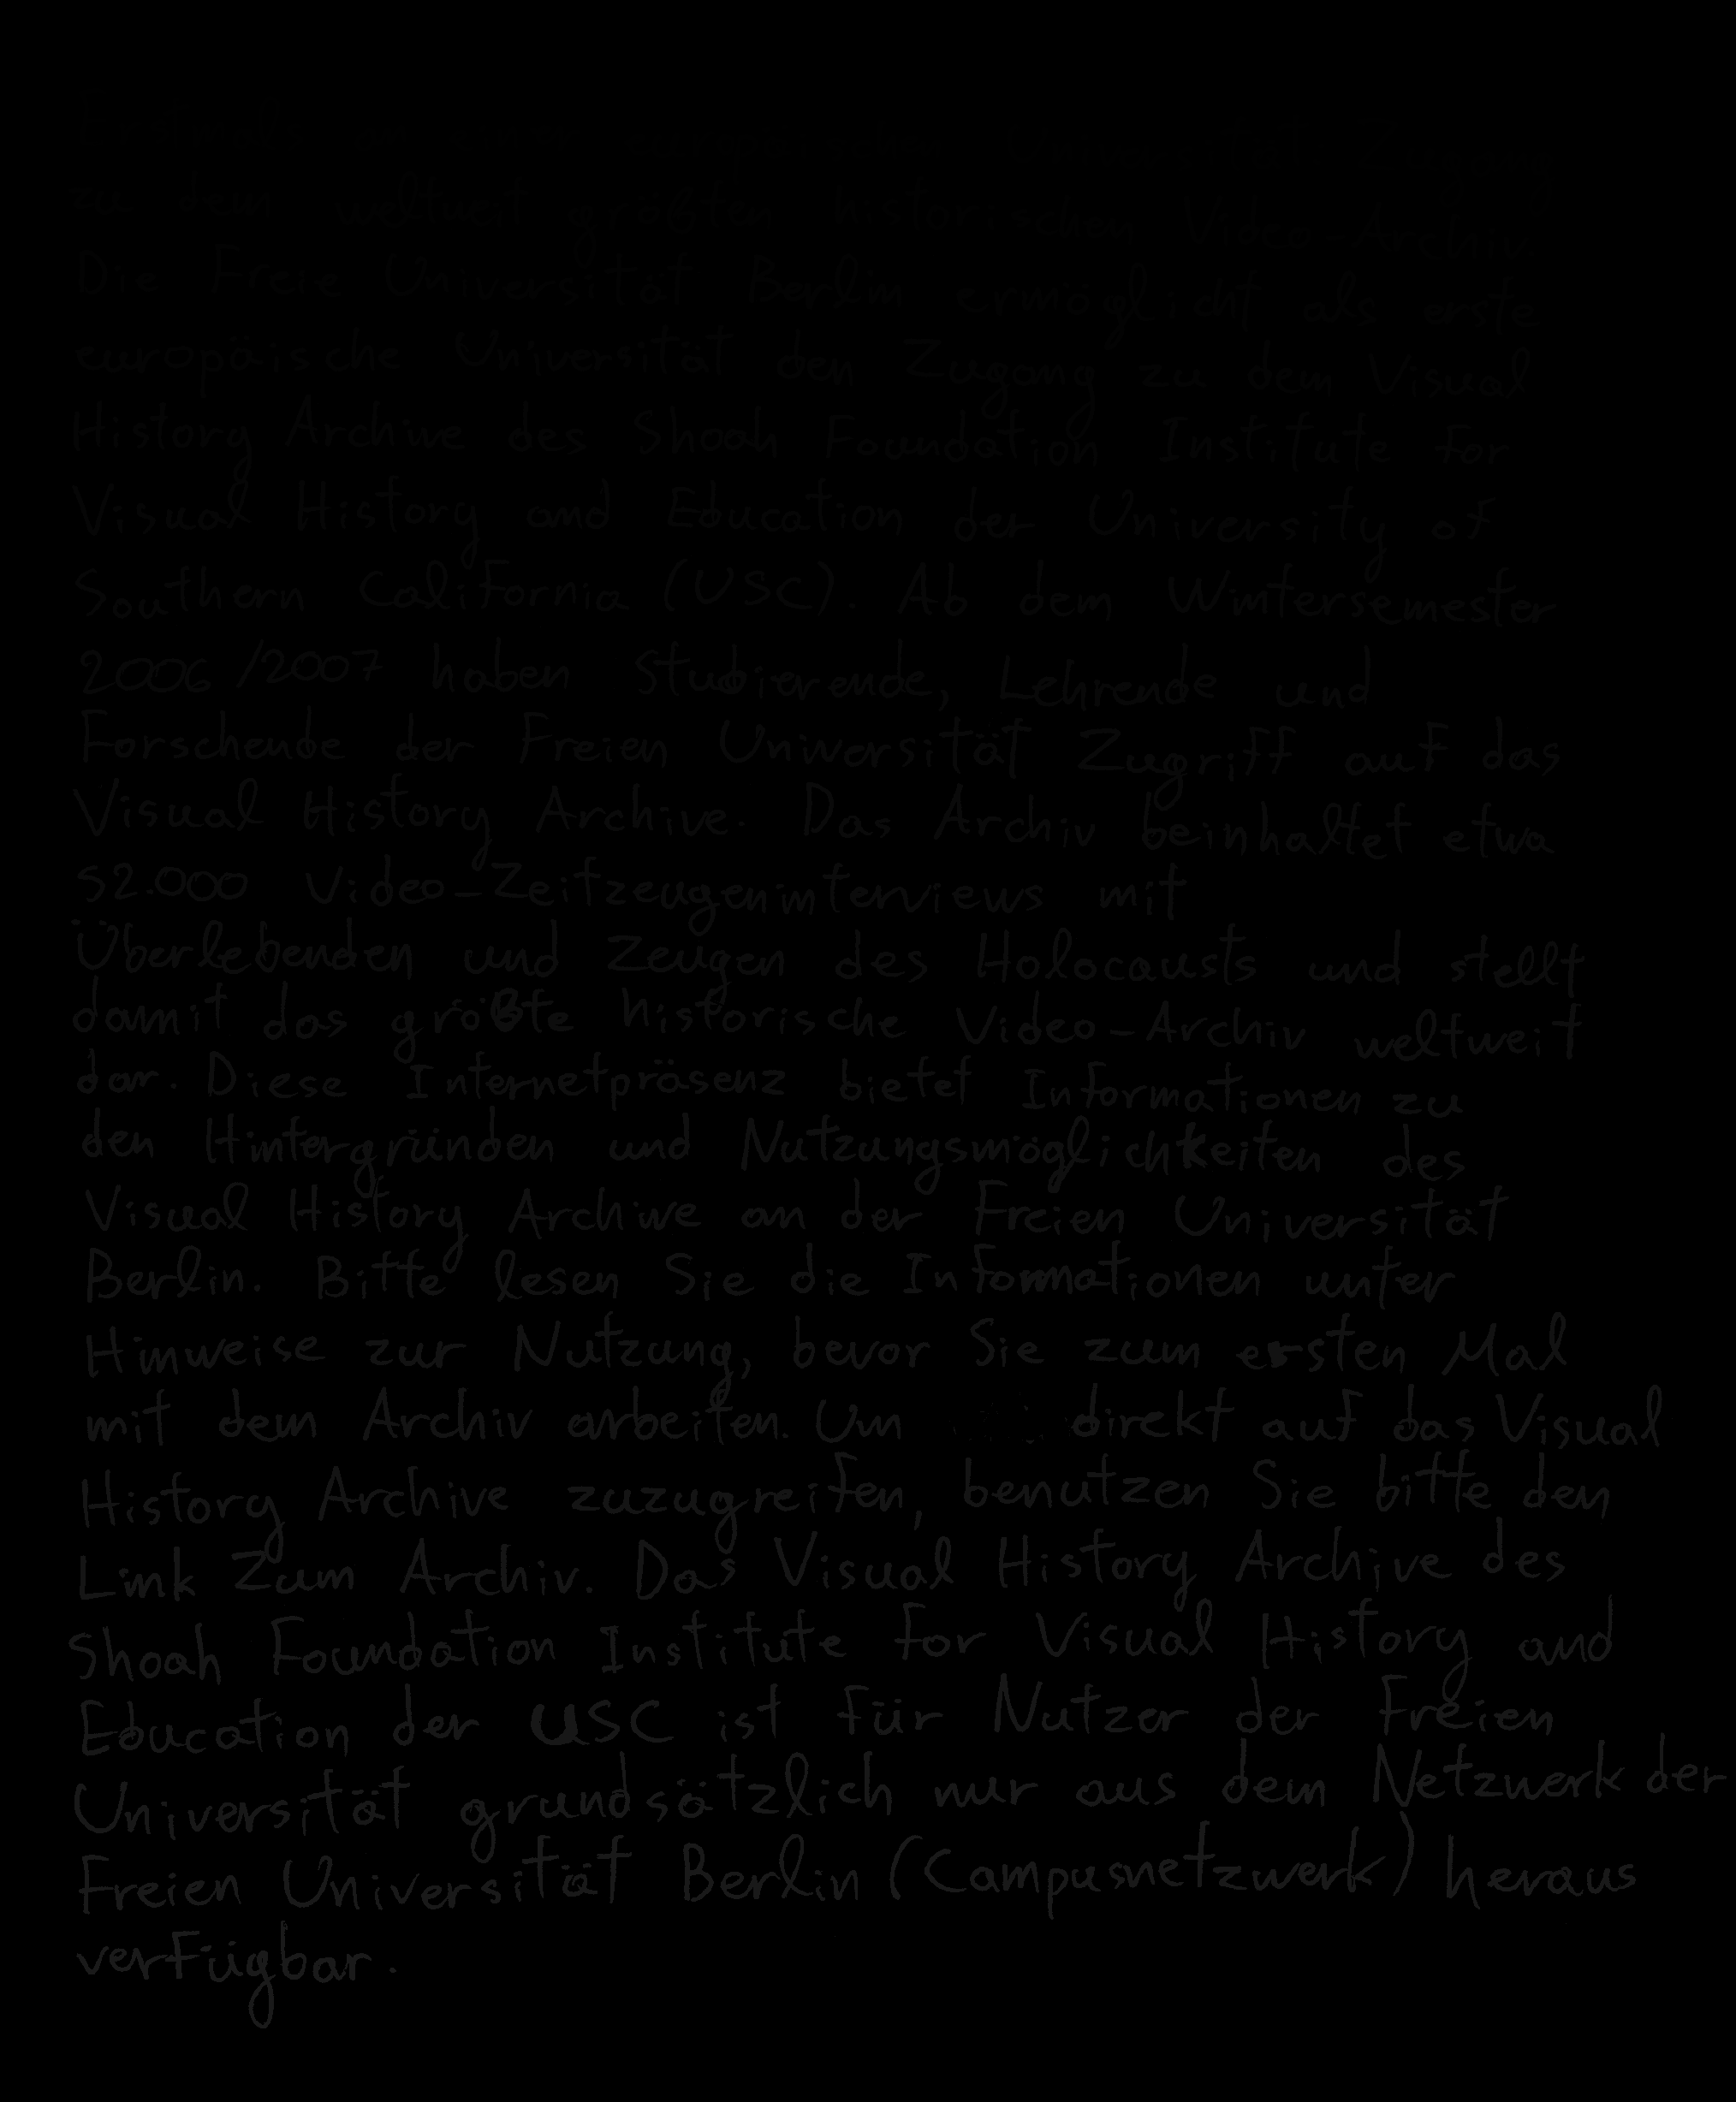 zu dem weltweit größten historischen Video-Archiv.
Die Freie Universität Berlin ermöglicht als erste
europäische Universität den Zugang zu dem Visual
History Archive des Shoah Foundation Institute for
Visual History and Education der University of
Southern California (USC). Ab dem Wintersemester
2006/2007 haben Studierende, Lehrende und
Forschende der Freien Universität Zugriff auf das
Visual History Archive. Das Archiv beinhaltet etwa
52.000 Video-Zeitzeugeninterviews mit
Überlebenden und Zeugen des Holocausts und stellt
damit das größte historische Video-Archiv weltweit
dar. Diese Internetpräsenz bietet Informationen zu
den Hintergründen und Nutzungsmöglichkeiten des
Visual History Archive an der Freien Universität
Berlin. Bitte lesen Sie die Informationen unter
Hinweise zur Nutzung, bevor Sie zum ersten Mal
mit dem Archiv arbeiten. Um direkt auf das Visual
History Archive zuzugreifen, benutzen Sie bitte den
Link Zum Archiv. Das Visual History Archive des
Shoah Foundation Institute for Visual History and
Education der USC ist für Nutzer der Freien
Universität grundsätzlich nur aus dem Netzwerk der
Freien Universität Berlin (Campusnetzwerk) heraus
verfügbar.